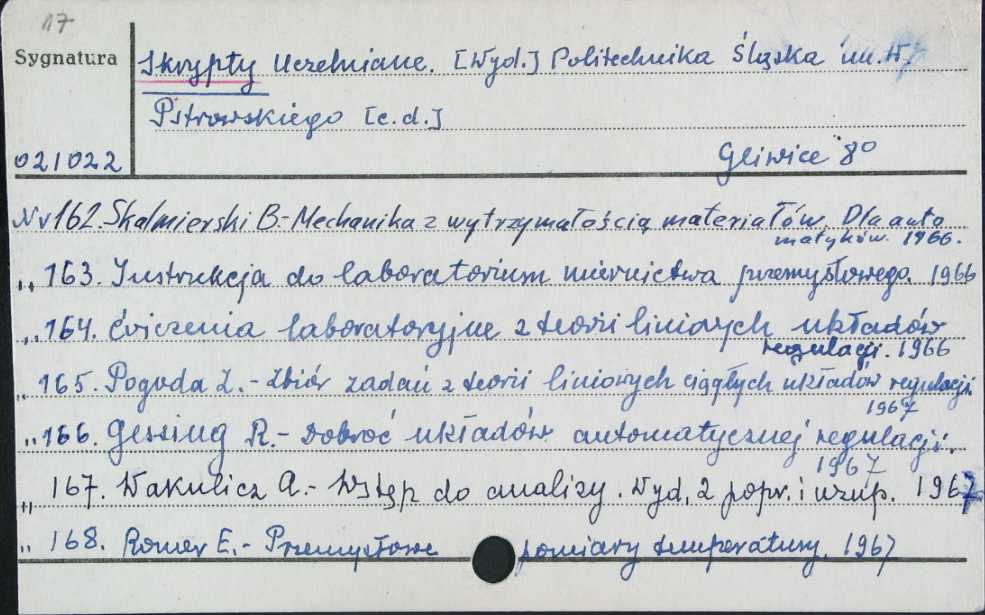 17
Sygnatura
Skrypty Uczelniane. [Wyd.] Politechnika Śląska im. W.
Pstrowskiego [c.d.]
021022
Gliwice 8°
Nr 162. Skalmierski B.- Mechanika z wytrzymałością materiałów. Dla auto
matyków. 1966.
„ 163. Instrukcja do laboratorium miernictwa przemysłowego. 1966
„ 164. Ćwiczenia laboratoryjne z teorii liniowych układów
regulacji. 1966
„ 165. Pogoda Z.- Zbiór zadań z teorii liniowych ciągłych układów regulacji.
1967
„ 166. Gessing R.- Dobroć układów automatycznej regulacji.
1967
„ 167. Wakulicz A.- Wstęp do analizy. Wyd. 2 popr. i uzup. 1967
„ 168. Romer E.- Przemysłowe pomiary temperatury. 1967